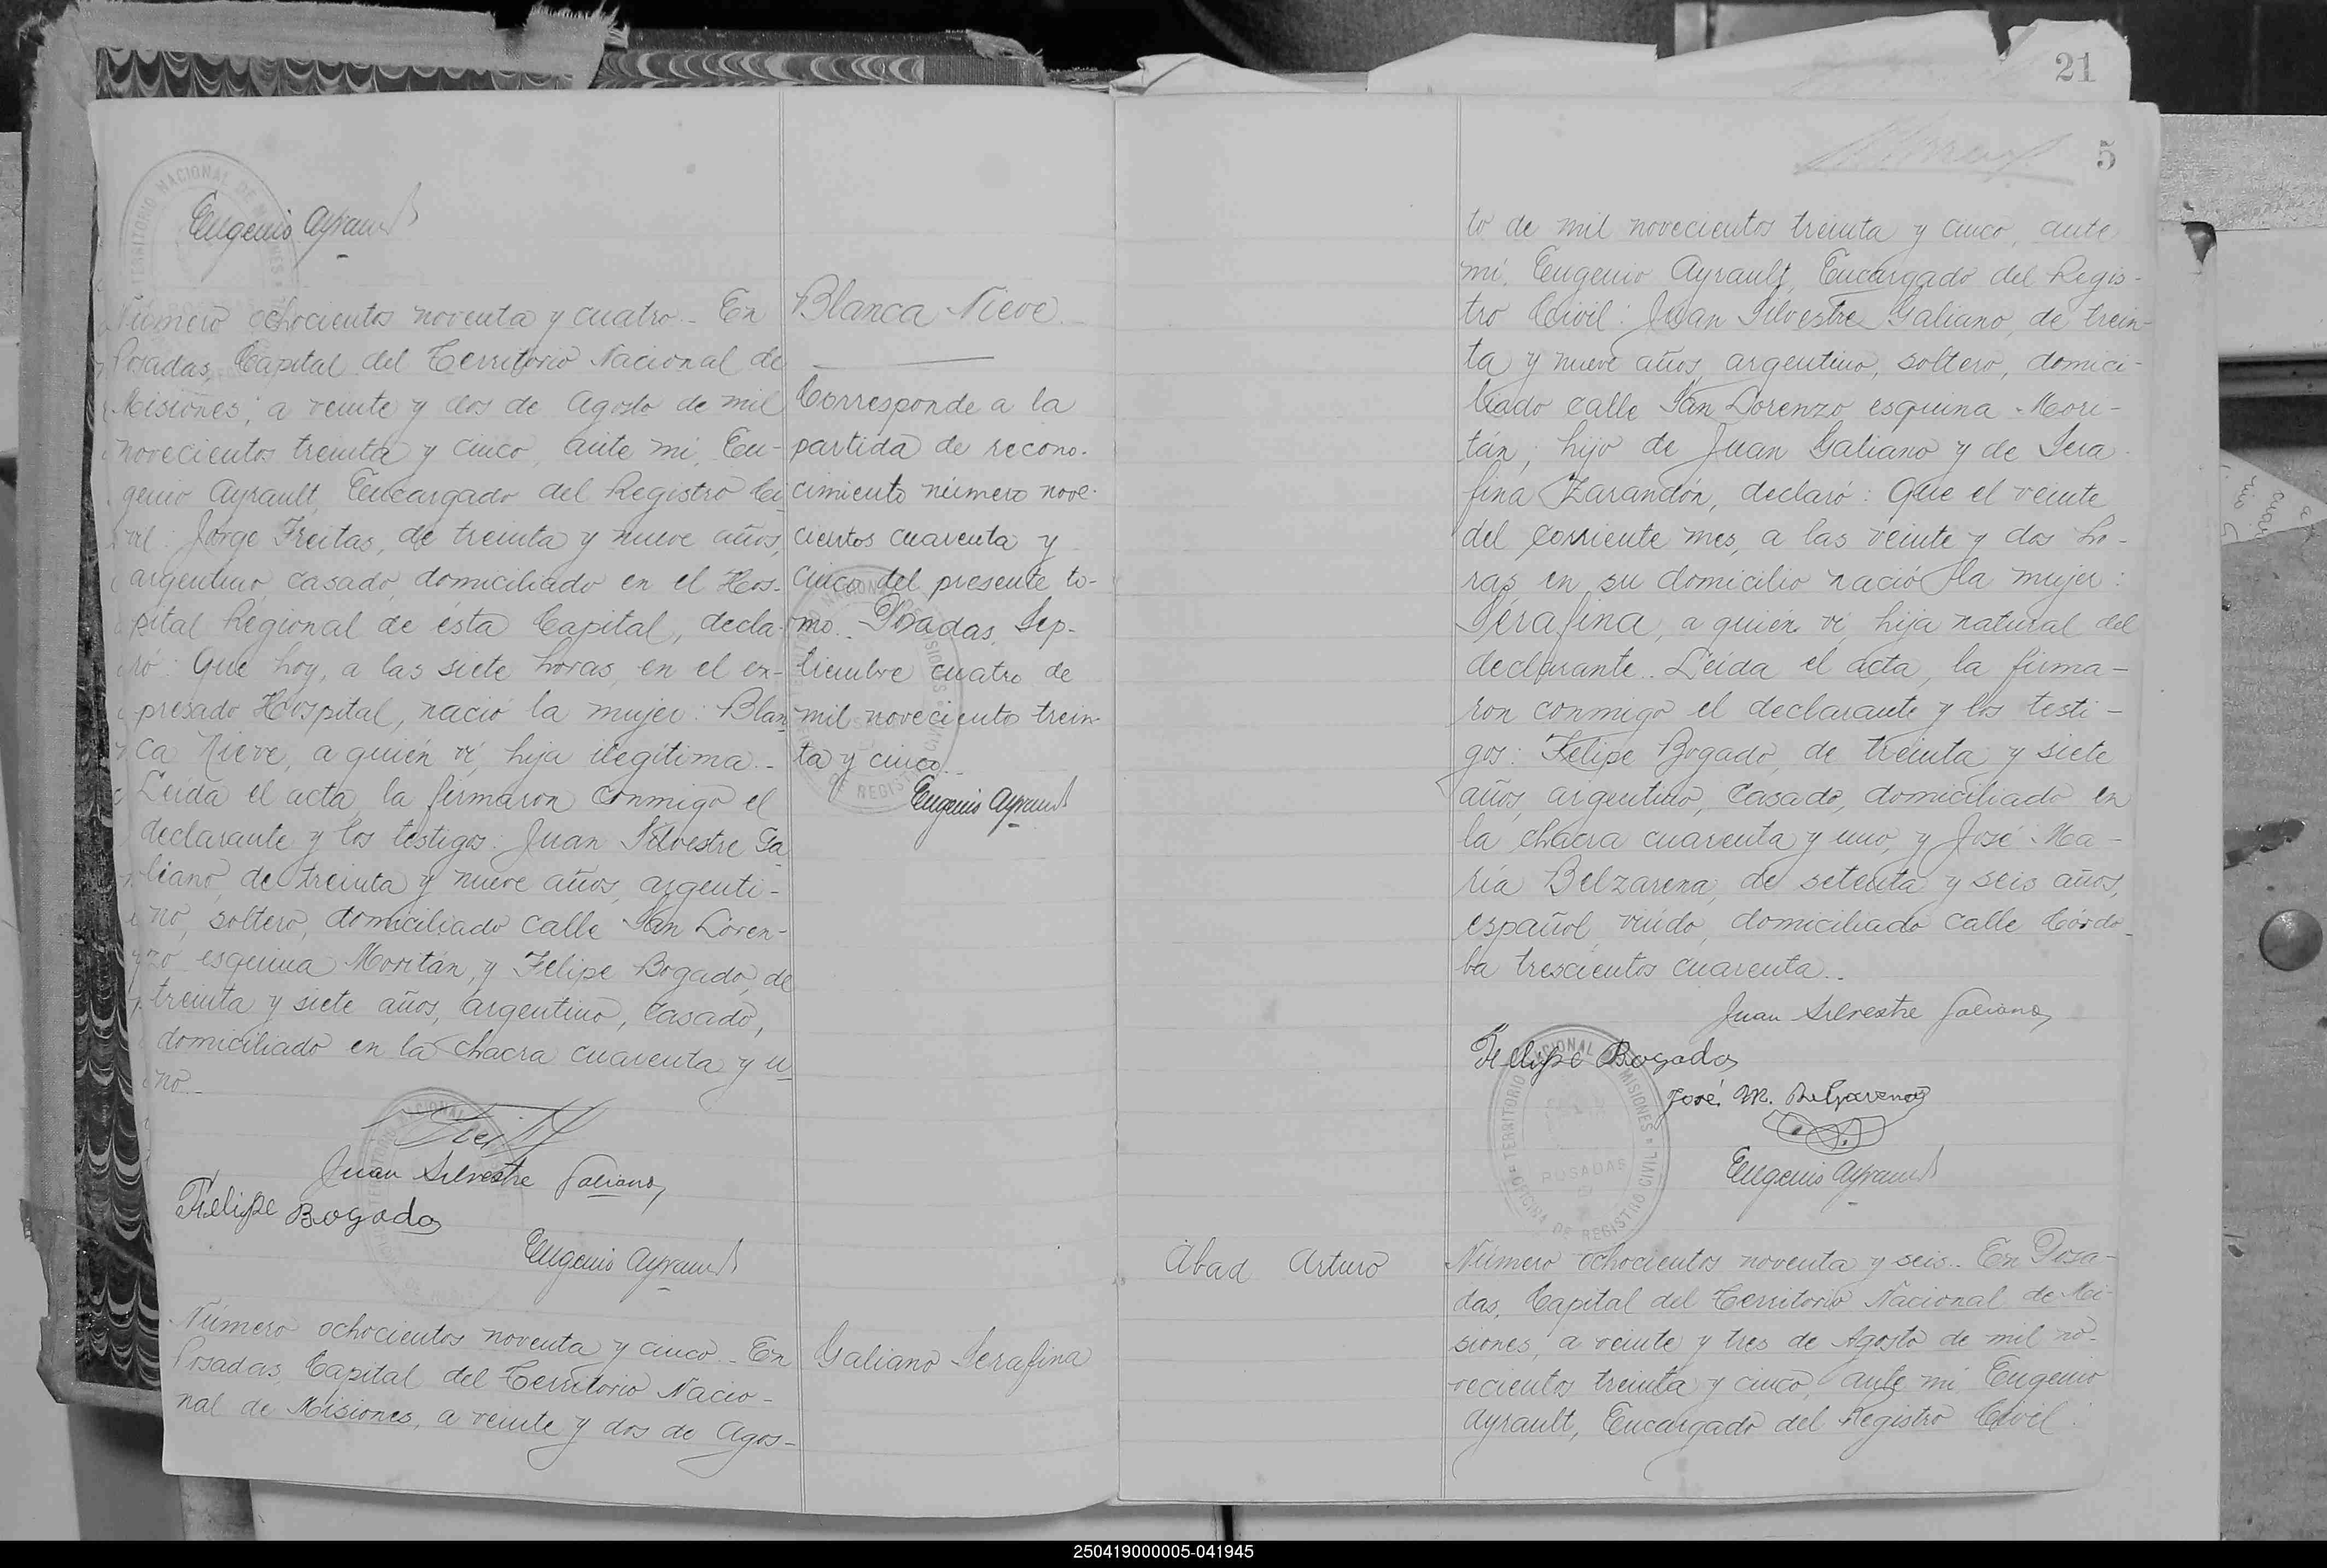 21
5
Eugenio Ayrault
Número ochocientos noventa y cuatro.- En
Posadas, Capital del Territorio Nacional de
Misiones, a veinte y dos de Agosto de mil
novecientos treinta y cinco, ante mi, Eu-
genio Ayrault, Encargado del Registro Ci-
vil: Jorge Freitas, de treinta y nueve años,
argentino, casado, domiciliado en el Hos-
pital Regional de ésta Capital, decla-
ró: Que hoy, a las siete horas, en el ex-
presado Hospital, nació la mujer: Blan
ca Nieve, a quién ví, hija ilegítima.-
Leída el acta, la firmaron conmigo el
declarante y los testigos: Juan Silvestre Ga
liano, de treinta y nueve años, argenti-
no, soltero, domiciliado calle San Loren-
zo esquina Moritán, y Felipe Bogado, de
treinta y siete años, argentino, casado,
domiciliado en la chacra cuarenta y u
no.-
Juan Silvestre Galiano
Felipe Bogado
Eugenio Ayrault
Número ochocientos noventa y cinco.- En
Posadas, Capital del Territorio Nacio-
nal de Misiones, a veinte y dos de Agos-
Blanca Nieve.
Corresponde a la
partida de recono-
cimiento número nove-
cientos cuarenta y
cinco del presente to-
mo.- Posadas, Sep-
tiembre cuatro de
mil novecientos trein-
ta y cinco.-
Eugenio Ayrault
Galiano Serafina
to de mil novecientos treinta y cinco, ante
mi, Eugenio Ayrault, Encargado del Regis-
tro Civil: Juan Silvestre Galiano, de trein-
ta y nueve años, argentino, soltero, domici-
liado calle San Lorenzo esquina Mori-
tán; hijo de Juan Galiano y de Sera-
fina Zarandón, declaró: Que el veinte
del corriente mes, a las veinte y dos ho-
ras, en su domicilio nació la mujer:
Serafina, a quién ví, hija natural del
declarante. Leída el acta, la firma-
ron conmigo el declarante y los testi-
gos: Felipe Bogado, de treinta y siete
años, argentino, casado, domiciliado en
la chacra cuarenta y uno, y José Ma-
ría Belzarena, de setenta y seis años,
español, viudo, domiciliado calle Córdo-
ba trescientos cuarenta.-
Juan Silvestre Galiano
Felipe Bogado
José M. Belzarena
TERRITORIO NACIONAL DE MISIONES
POSADAS
OFICINA DE REGISTRO CIVIL
Eugenio Ayrault
Abad Arturo
Número ochocientos noventa y seis.- En Posa-
das, Capital del Territorio Nacional de Mi-
siones, a veinte y tres de Agosto de mil no-
vecientos treinta y cinco, ante mi, Eugenio
Ayrault, Encargado del Registro Civil:
250419000005-041945